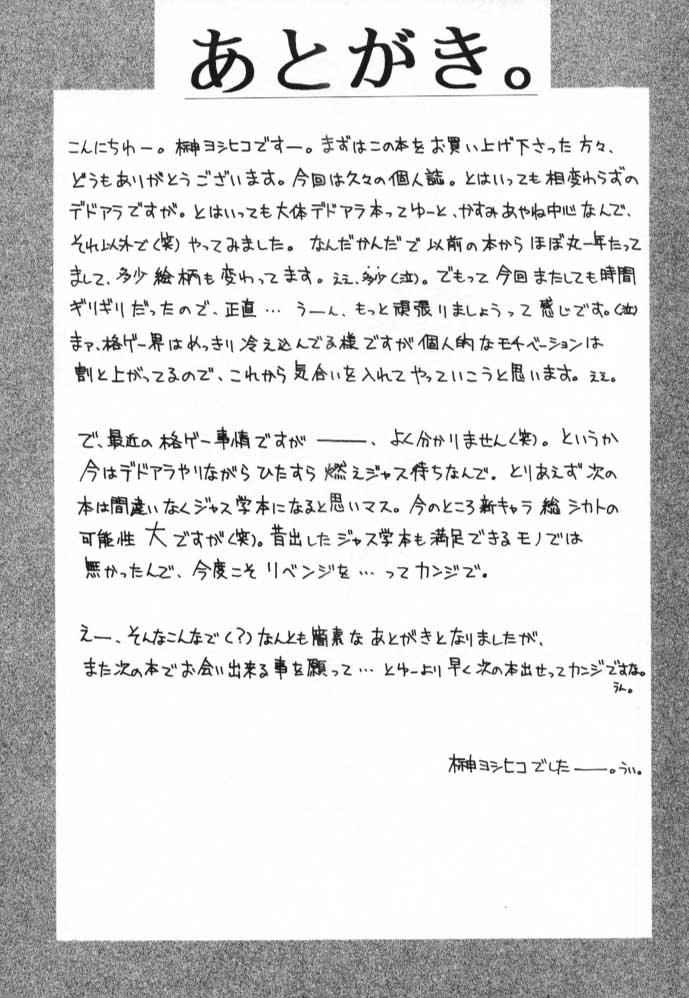 あとがき。
こんにちわー。榊ヨシヒコですー。まずはこの本をお買い上げ下さった方々、
どうもありがとうございます。今回は久々の個人誌。とはいっても相変わらずの
デドアラですが。とはいっても大体デドアラ本ってゆーと、かすみあやね中心なんで、
それ以外で(笑)やってみました。なんだかんだで以前の本からほぼ丸一年たって
まして、多少絵柄も変わってます。ええ、多少(泣)。でもって今回またしても時間
ギリギリだったので、正直…うーん、もっと頑張りましょうって感じです。(泣)
まァ、格ゲー界はめっきり冷え込んでる様ですが個人的なモチベーションは
割と上がってるので、これから気合いを入れてやっていこうと思います。ええ。
で、最近の格ゲー事情ですが―――、よく分かりません(笑)。というか
今はデドアラやりながらひたすら燃えジャス待ちなんで。とりあえず次の
本は間違いなくジャス学本になると思いマス。今のところ新キャラ総シカトの
可能性大ですが(笑)。昔出したジャス学本も満足できるモノでは
無かったんで、今度こそリベンジを…ってカンジで。
えー、そんなこんなで(?)なんとも簡素なあとがきとなりましたが、
また次の本でお会い出来る事を願って…とゆーより早く次の本出せってカンジですな。
うん。
榊ヨシヒコでした――。うぃ。